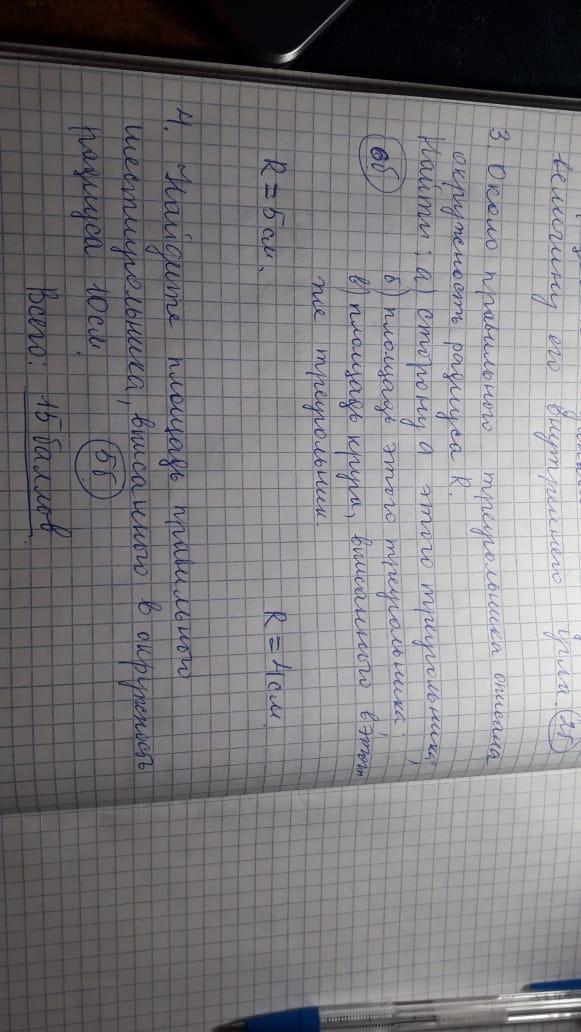 величину его внутреннего угла. 2б
3. Около правильного треугольника описана
окружность радиуса R.
Найти: а) сторону а этого треугольника;
6б б) площадь этого треугольника;
в) площадь круга, вписанного в этот
же треугольник
R = 5 см. R = 4 см.
4. Найдите площадь правильного
шестиугольника, вписанного в окружность
радиуса 10 см. 5б
Всего: 15 баллов